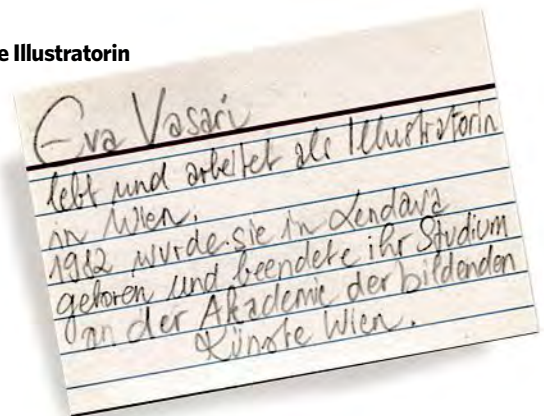 e Illustratorin
Eva Vasari
lebt und arbeitet als Illustratorin
in Wien.
1982 wurde sie in Lendava
geboren und beendete ihr Studium
an der Akademie der bildenden
Künste Wien.